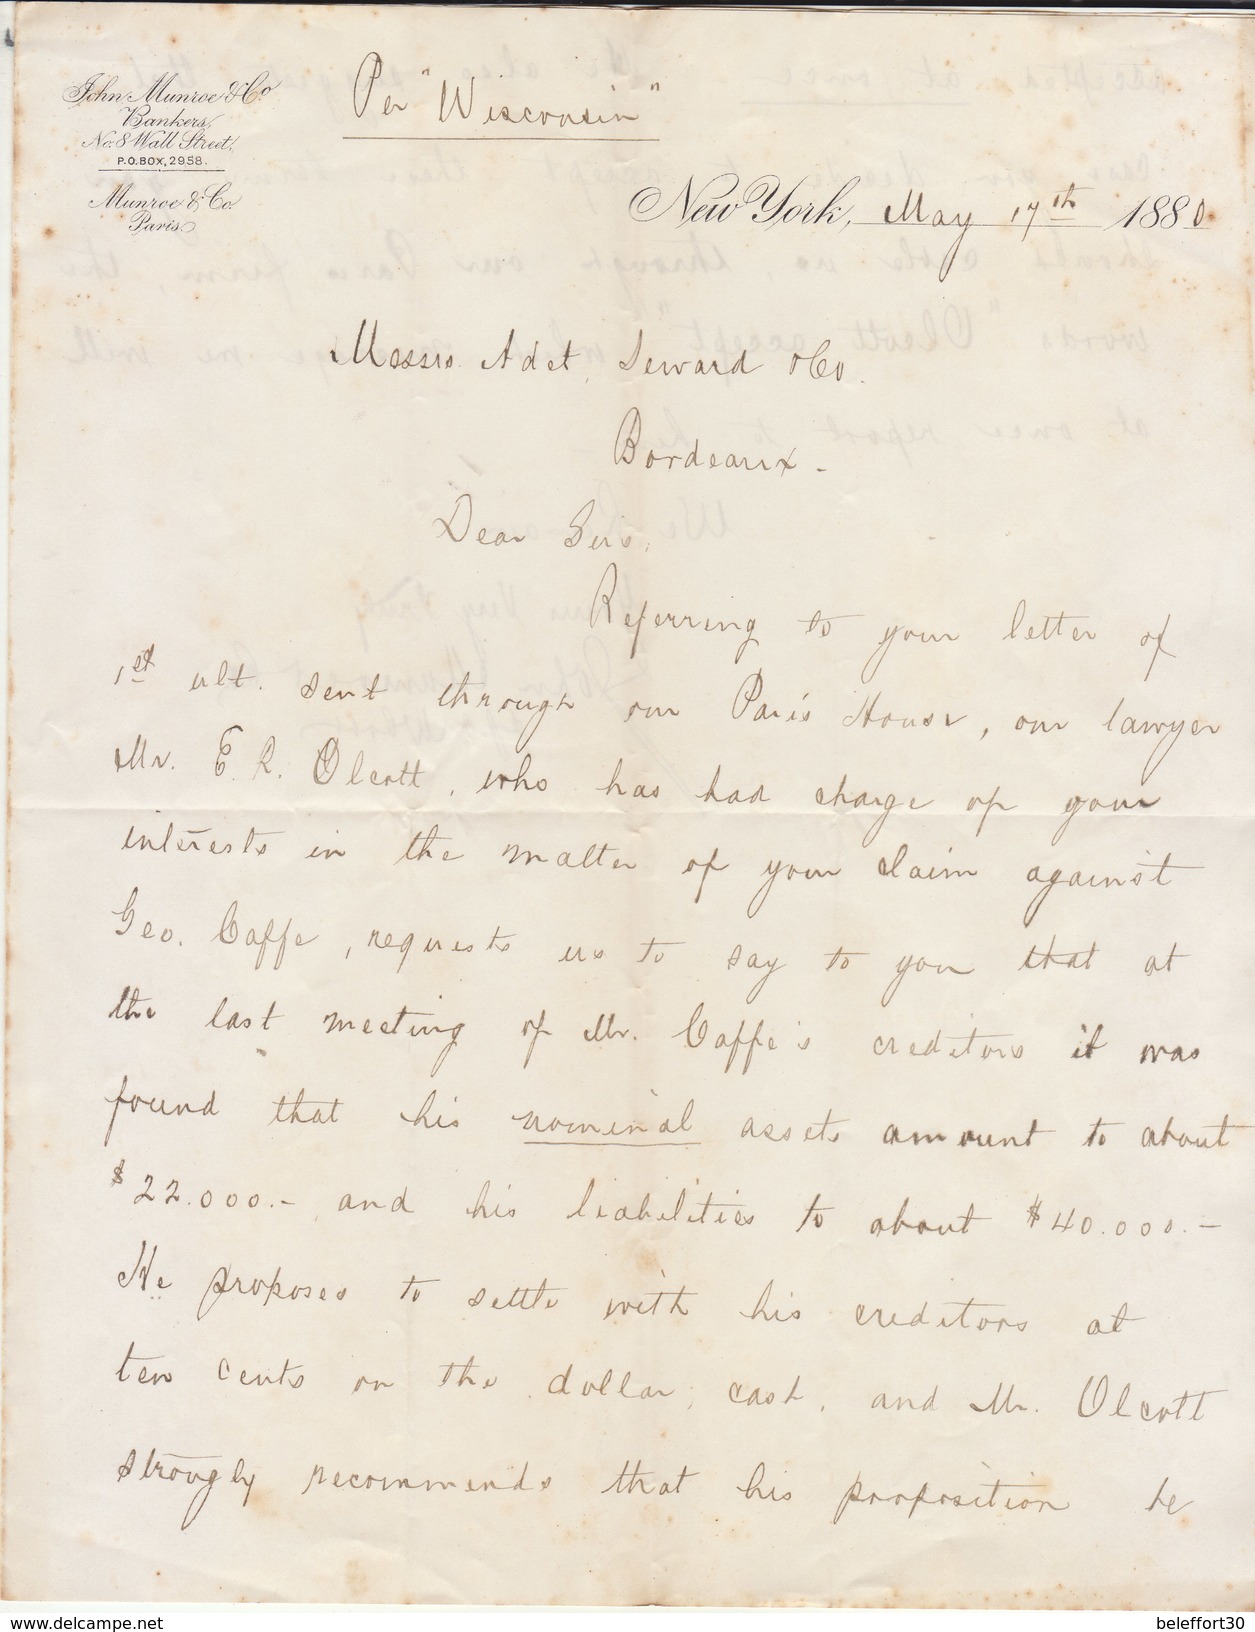 John Munroe & Co.
Bankers,
No. 8 Wall Street,
P.O. BOX, 2958.
Munroe & Co.
Paris
Per "Wisconsin"
New York, May 17th 1880
Messrs. Adet, Seward & Co.
Bordeaux.
Dear Sirs,
Referring to your letter of
1st ult. sent through our Paris House, our lawyer
Mr. E. R. Olcott, who has had charge of your
interests in the matter of your claim against
Geo. Caffe, requests us to say to you that at
the last meeting of Mr. Caffe's creditors it was
found that his nominal assets amount to about
$22.000.- and his liabilities to about $40.000.-
He proposes to settle with his creditors at
ten cents on the dollar, cash, and Mr. Olcott
strongly recommends that his proposition be
www.delcampe.net
beleffort30